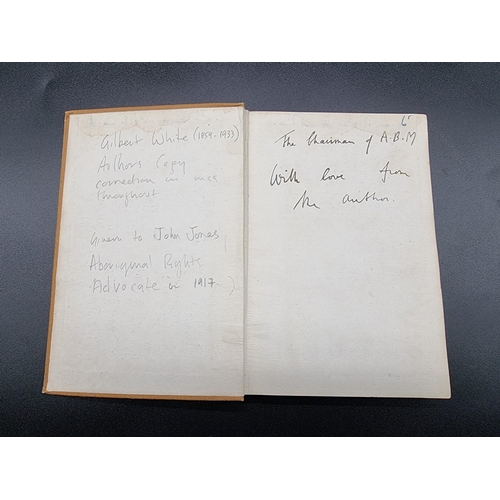 Gilbert White (1859-1933)
Authors Copy
correction in mss
throughout
Given to John Jones,
Aboriginal Rights
Advocate in 1917.)
6
The Chairman of A.B.M
With love from
the author.